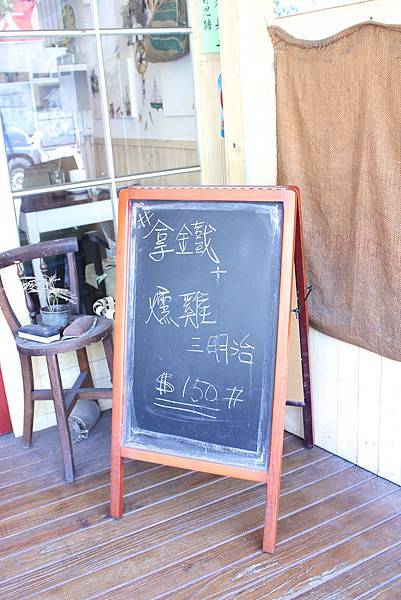 #拿鐵
+
燻雞
三明治
$150#